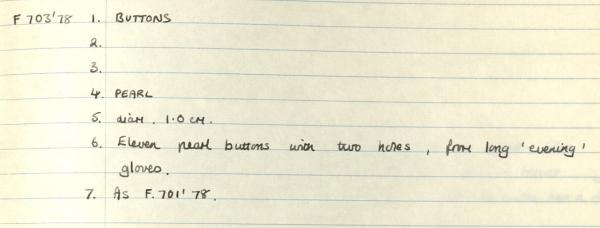 F 703'78 1. BUTTONS
2.
3.
4. PEARL
5. diam. 1.0 cm.
6. Eleven pearl buttons with two holes, from long 'evening'
gloves.
7. As F.701'78.